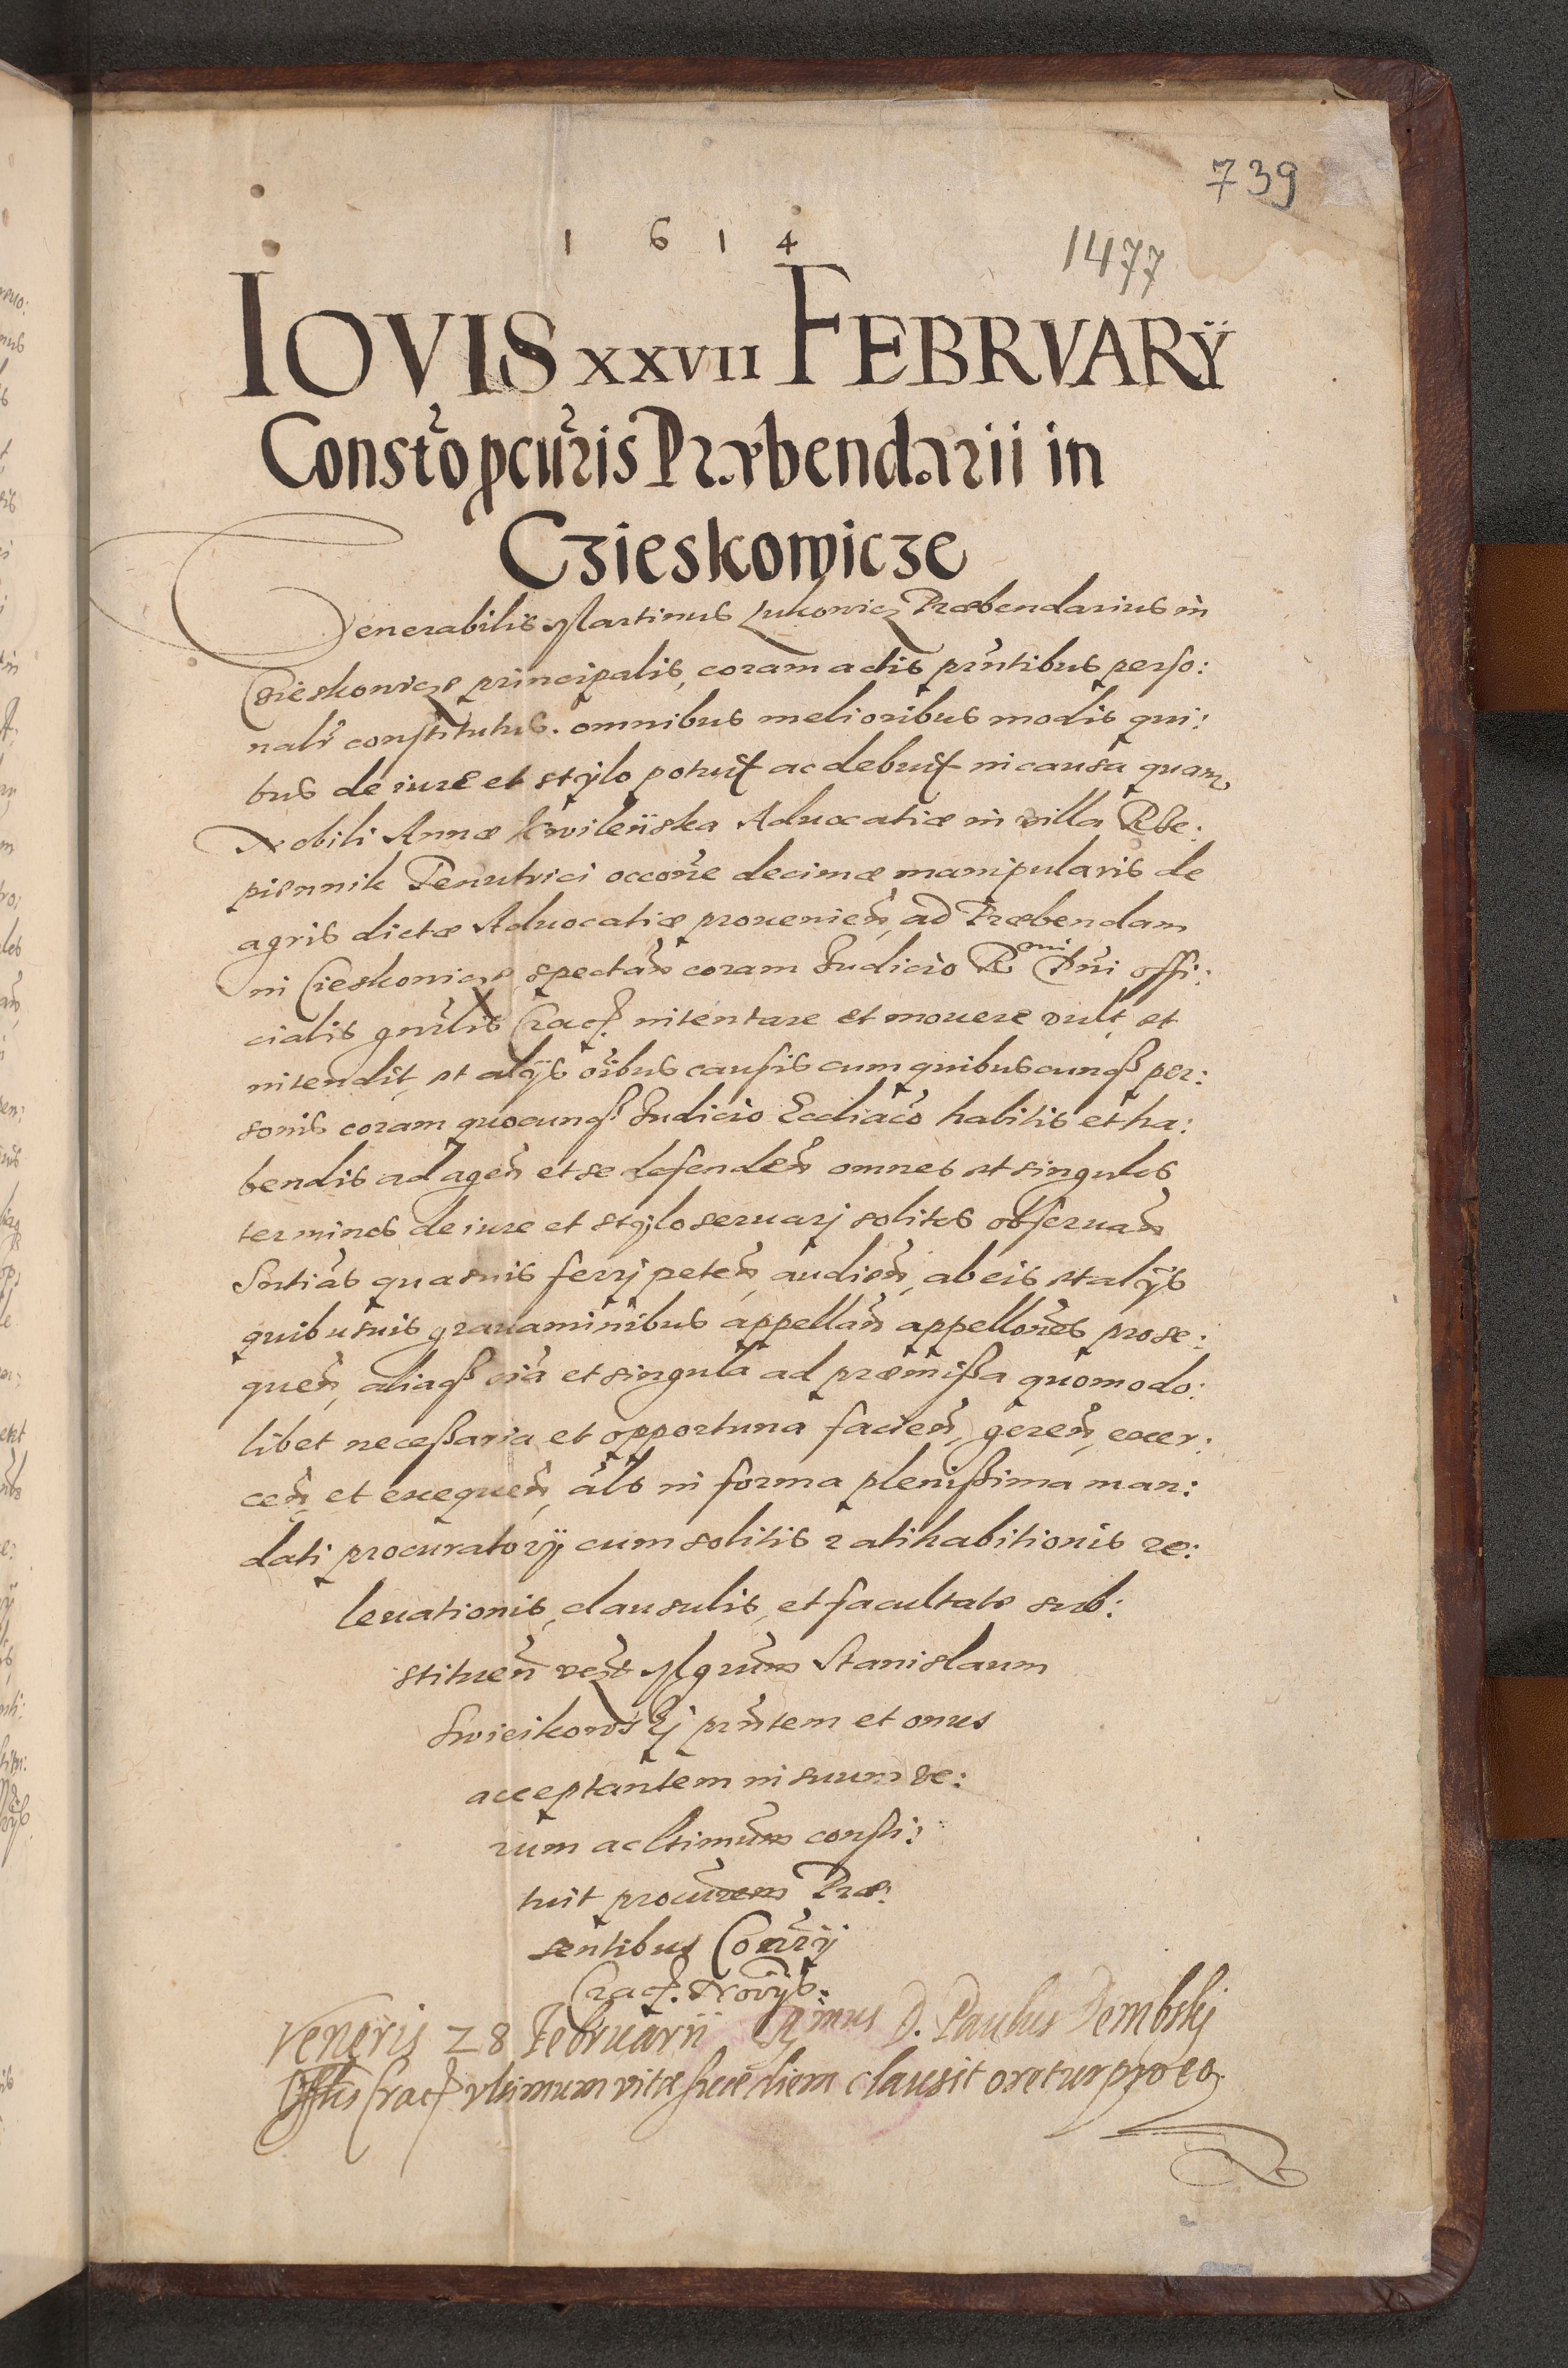 739
1 6 1 4
1477
IOVIS XXVII FEBRVARÿ
Constõ pcũris Præbendarii in
Czieskowicze
Venerabilis Martinus Lukowicz Præbendarius in
Czieskowicze principalis, coram actis pñtibus perso:
nalr constitutus. omnibus melioribus modis qui:
bus de iure et stylo potuit ac debuit in causa quam
Nobili Annæ Advocatiæ in villa Rze:
piennik Tenutrici occõne decimæ manipularis de
agris dictæ Advocatiæ provenieñ, ad Præbendam
in Cieskowicze spectañ coram Iudicio R Dñi offi:
cialis gñrlis Crac. intentare et mouere vult et
intendit, et alijs oĩbus causis cum quibuscunq per:
sonis coram quocunq Iudicio Eccliaco habitis et ha:
bendis ad ageñ et se defendeñ omnes et singulos
terminos de iure et stylo seruarj solitos obseruañ
Sntias quasuis ferrj peteñ, audieñ, ab eis et alijs
quibusuis grauaminibus appellañ appellones prose:
queñ, aliaqß oĩa et singula ad præmißa quomodo:
libet neceßaria et opportuna facieñ, gereñ, exer:
ceñ, et exequeñ, als in forma plenißima man:
dati procuratorij cum solitis ratihabitionis re:
leuationis, clausulis, et facultate sub:
stitueñ Mgrum Stanislaum
pñtem et onus
acceptantem in suum ve:
rum ac ltimum consti:
tuit procurem Præ:
sentibus
Crac. Nõrijs.
Veneris 28 Februarii Rmus D. Paulus Dembskj
Offlis Crac vltimum vitæ suæ diem clausit oretur pro eo.